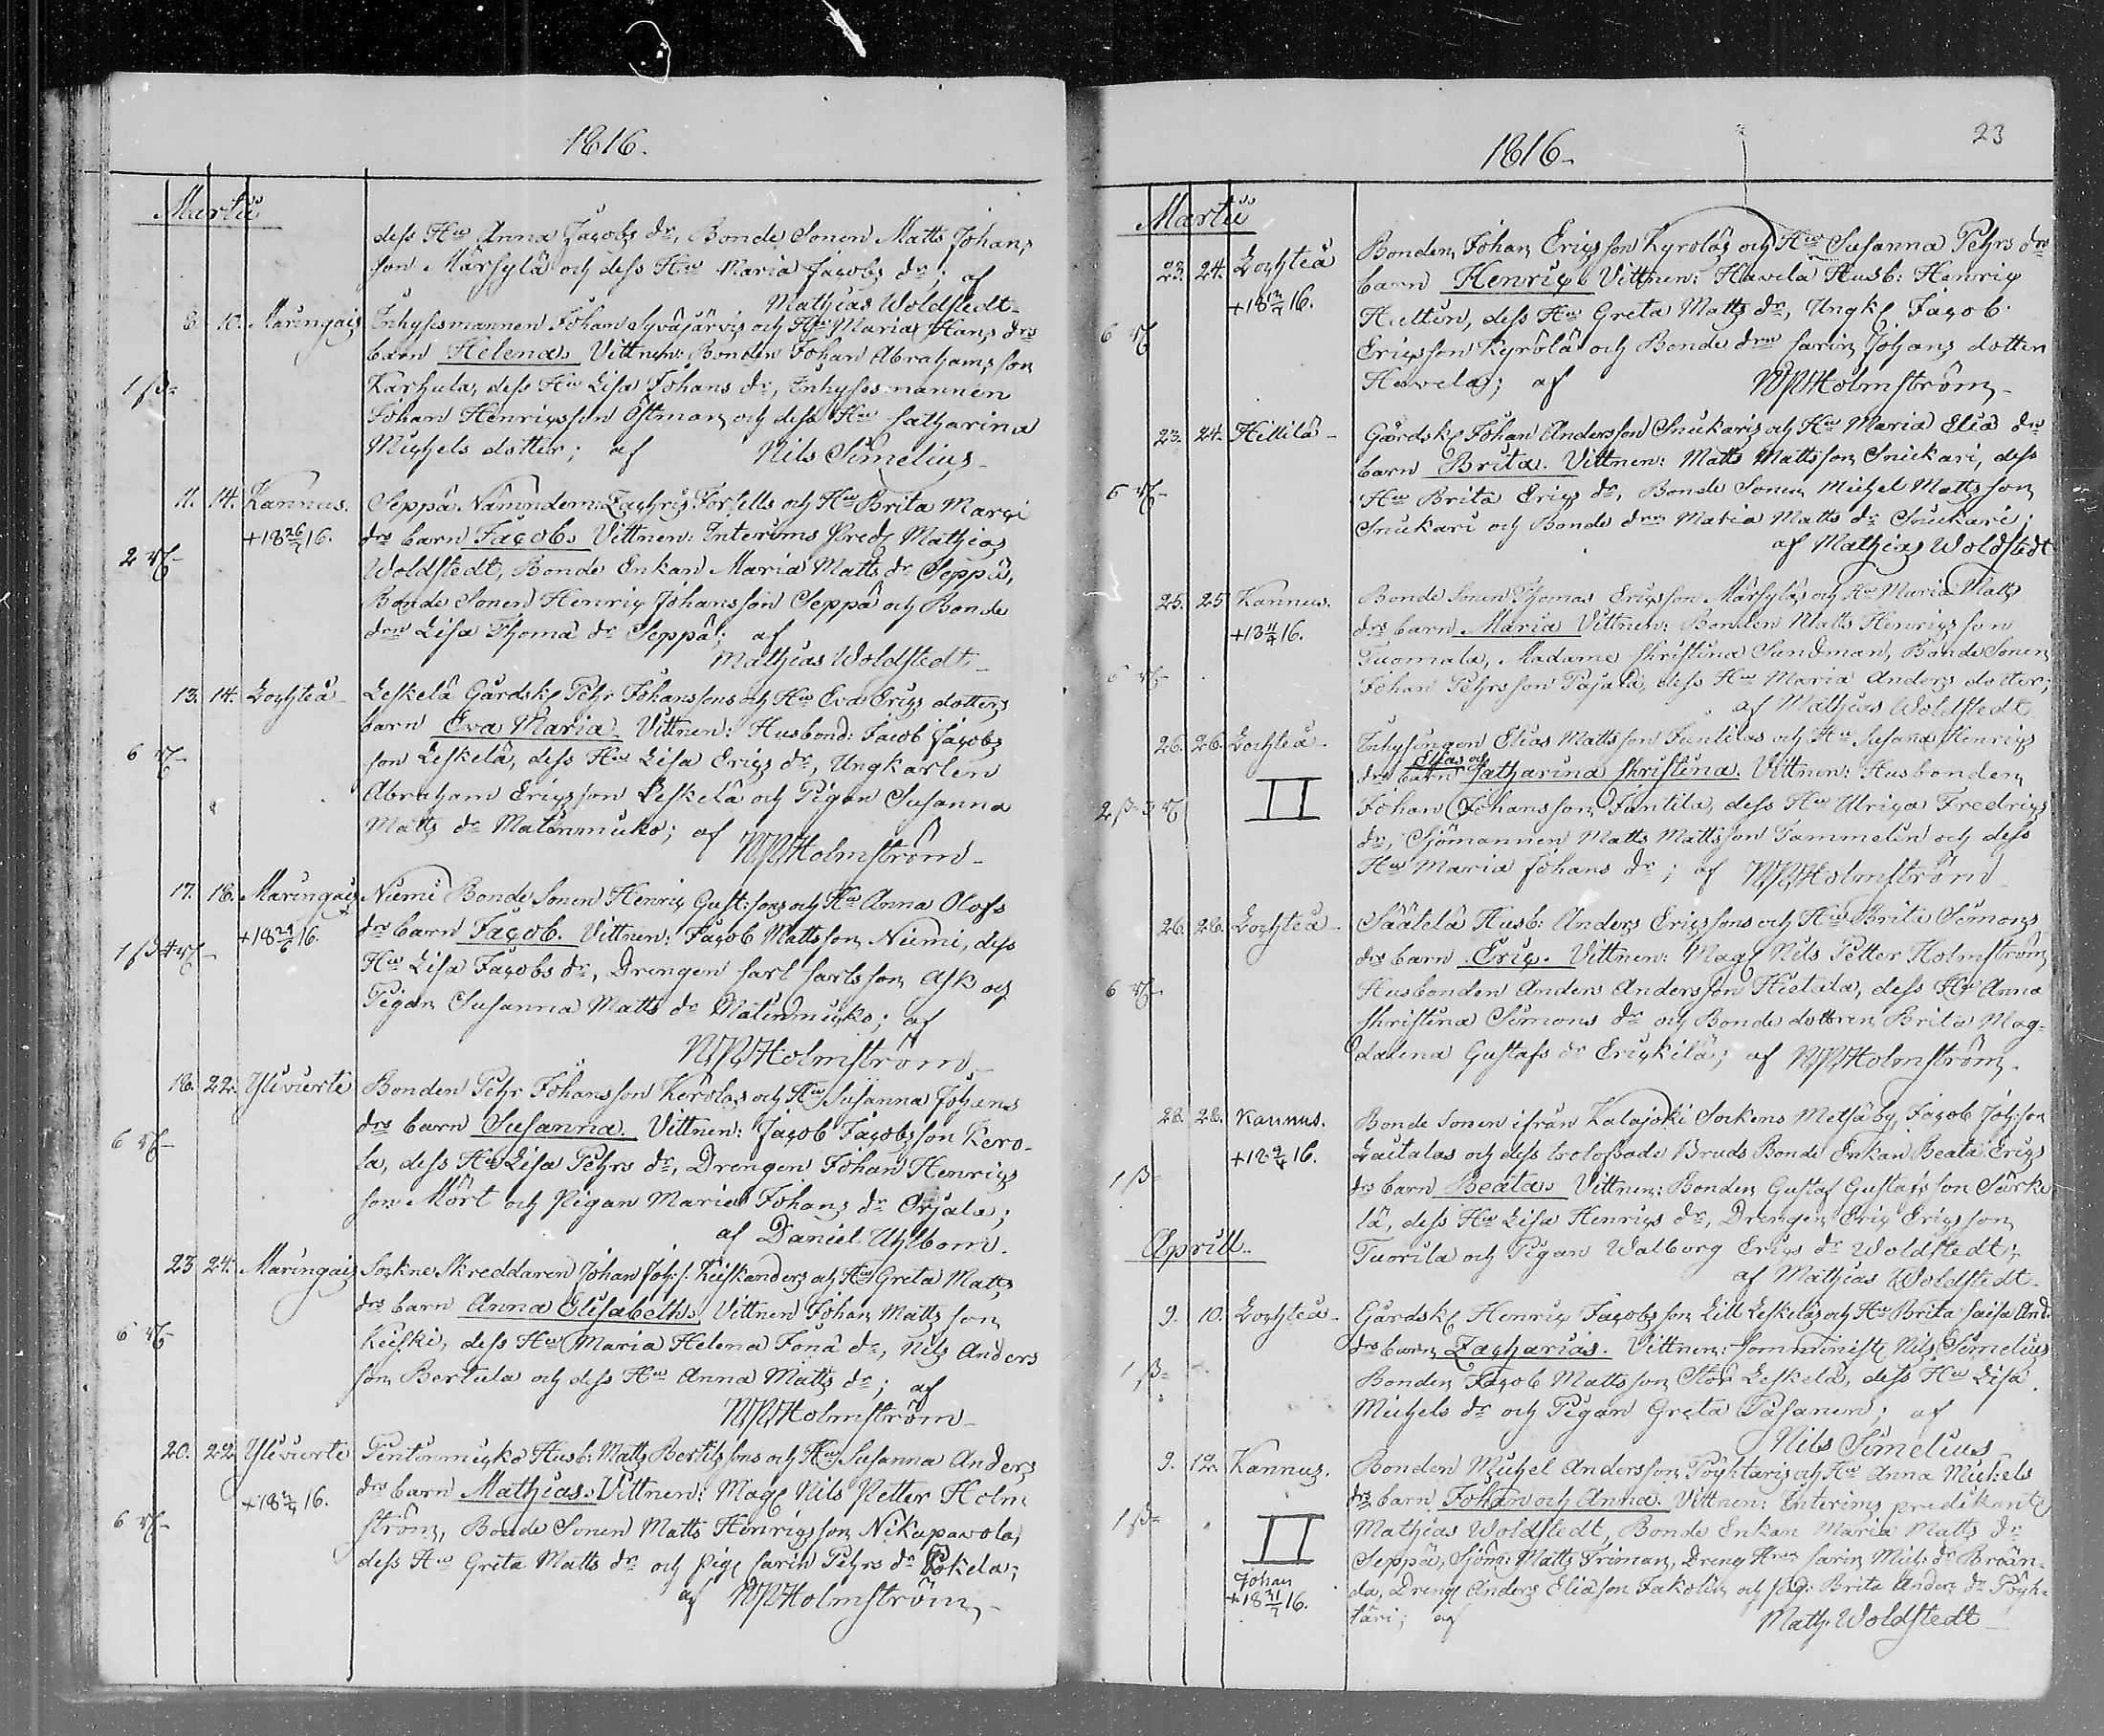 1816.
Martii
dess Hu Anna Jacobs dr, Bonde Sonen Matts Johans
son Märsylä och dess Hu Maria Jacobs dr; af
Mathias Woldstedt
8. 10. Maringais Inhysesmannen Johan Syväjärvis och Hu Maria Hans drs
barn Helena. Vittnen: Bonden Johan Abrahams son
1 ß- Karhula, dess Hu Lisa Johans dr, Inhysesmannen
Johan Henricsson Östman och dess Hu Catharina
Michels dotter; af Nils Simelius
11. 14. Kannus. Seppä Nämndem: Zachris Forsells och Hu Brita Marci
+18 26/7 16. drs barn Jacob. Vittnen: Interims Pred: Mathias
2 Woldstedt, Bonde Enkan Maria Matts dr Seppä,
Bonde Sonen Henric Johansson Seppä och Bonde
drn Lisa Thomä dr Seppä; af
Mathias Woldstedt
13. 14. Lochteå Leskelä Gårdsk: Pehr Johanssons och Hu Eva Erics dotters
barn Eva Maria. Vittnen: Husbond: Jacob Jacobs
6 son Leskelä, dess Hu Lisa Erics dr, Ungkarlen
Abraham Ericsson Leskelä och Pigan Susanna
Matts dr Matinmucko; af NPHolmström
17. 18. Maringais Niemi Bonde Sonen Henric Gust:sons och Hu Anna Olofs
+18 /6 16. drs barn Jacob. Vittnen: Jacob Mattsson Niemi, dess
1 ß 4 Hu Lisa Jacobs dr, Drengen Carl Carlsson Ask och
Pigan Susanna Matts dr Matinmucko; af
NPHolmström
18. 22. Yliviirte Bonden Pehr Johansson Kerolas och Hu Susanna Johans
drs barn Susanna. Vittnen: Jacob Jacobsson Kero-
6 la, dess Hu Lisa Pehrs dr, Drengen Johan Henrics
son Mört och Pigan Maria Johans dr Orjala;
af Daniel Uhlbom.
23 24. Maringais Sockne Skreddaren Johan Joh:s. Keiskanders och Hu Greta Matts
drs barn Anna Elisabeth. Vittnen Johan Matts son
6 Keiski, dess Hu Maria Helena Jona dr, Nils Anders
son Bertula och dess Hu Anna Matts dr; af
NPHolmström
20. 22. Yliviirte Pentinmucko Husb: Matts Bertilssons och Hu Susanna Anders
+18 /4 16. drs barn Mathias. Vittnen: Mag: Nils Petter Holm
6 ström, Bonde Sonen Matts Henricsson Nikupavola,
dess Hu Greta Matts dr och pig: Carin Pehrs dr
af NPHolmström
23
1816.
Martii
23. 24. Lochteå Bonden Johan Ericsson Kyrölas och Hu Susanna Pehrs drs
barn Henric. Vittnen: Havela Husb: Henric
+18 16. Huttun, dess Hu Greta Matts dr, Ungk: Jacob
6 Ericsson Kyrölä och Bonde drn Carin Johans dotter
Havela; af NPHolmström
23. 24. Hillilä Gårdsk: Johan Andersson Snickaris och Hu Maria Eliä drs
barn Brita. Vittnen: Matts Mattsson Snickari, dess
6 Hu Brita Erics dr, Bonde Sonen Michel Mattsson
Snickari och Bonde drn Maria Matts dr Snickari;
af Mathias Woldstedt
25. 25 Kannus. Bonde Sonen Thomas Ericsson Märsyläs och Hu Maria Matts
+18 11/4 16. drs barn Maria Vittnen: Bonden Matts Henricsson
Tuomala, Madame Christina Sundman, Bonde Sonen
6 Johan Pehrsson Pajala, dess Hu Maria Anders dotter;
af Mathias Woldstedt
26. 26. Lochteå Inhysingen Elias Mattsson Juntilas och Hu Susana Henrics
Elias och
drs barn Catharina Christina. Vittnen: Husbonden
2 ß 3 II Johan Johansson Juntila, dess Hu Ulrica Fredrics
dr, Sjömannen Matts Mattsson Tammelin och dess
Hu Maria Johans dr; af NPHolmström
26. 28. Lochteå Säätelä Husb: Anders Ericssons och Hu Brita Simons
drs barn Eric. Vittnen: Mag: Nils Petter Holmström
6 Husbonden Anders Andersson Hietala, dess Hu Anna
Christina Simons dr och Bonde dottren Brita Mag-
dalena Gustafs dr Erickilä; af NPHolmström
28. 28. Kannus. Bonde Sonen ifrån Kalajoki Sockens Metsäby, Jacob Joh:son
+18 /4 16. Laitalas och dess trolofvade Bruds Bonde Enkan Beata Erics
1 ß- drs barn Beata. Vittnen: Bonden Gustaf Gustafsson Särki
lä, dess Hu Lisa Henrics dr, Drengen Eric Ericsson
Aprill.
Tuorila och Pigan Walborg Erics dr Woldstedt;
af Mathias Woldstedt
9. 10. Lochteå Gårdsk: Henric Jacobsson Lill Leskeläs och Hu Brita Caisa And:
drs barn Zacharias. Vittnen: Comminist: Nils Simelius
1 ß- Bonden Jacob Mattsson Stor Leskelä, dess Hu Lisa
Michels dr och Pigan Greta Pasanen; af
Nils Simelius
9. 12. Kannus. Bonden Michel Andersson Pöyhtäris och Hu Anna Michels
drs barn Johan och Anna. Vittnen: Interims predikant:
1 ß- II Mathias Woldstedt, Bonde Enkan Maria Matts dr
Seppä, Sjöm: Matts Friman, Dreng Hun Carin Mich: dr Brän-
Johan da, Dreng: Anders Eliäson Jakola och pig: Brita Anders dr Pöyh-
+18 21/7 16. täri; af Math. Woldstedt